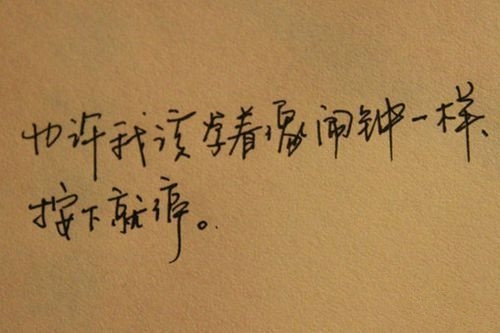 也许我该学着像闹钟一样、
按下就停。